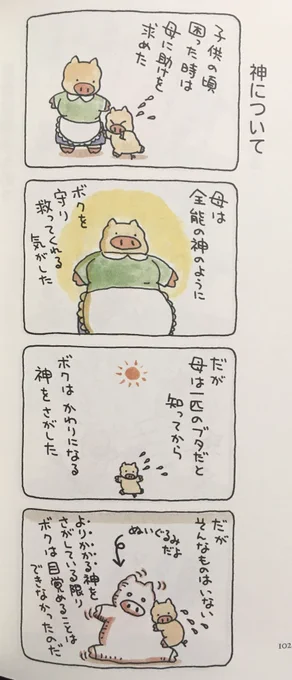 神について
子供の頃
困った時は
母に助けを
求めた
母は
全能の神のように
ボクを
守り
救ってくれる
気がした
だが
母は一匹のブタだと
知ってから
ボクはかわりになる
神をさがした
だが
そんなものはいない
ぬいぐるみだよ
よりかかる神を
さがしている限り
ボクは目覚めることは
できなかったのだ
102